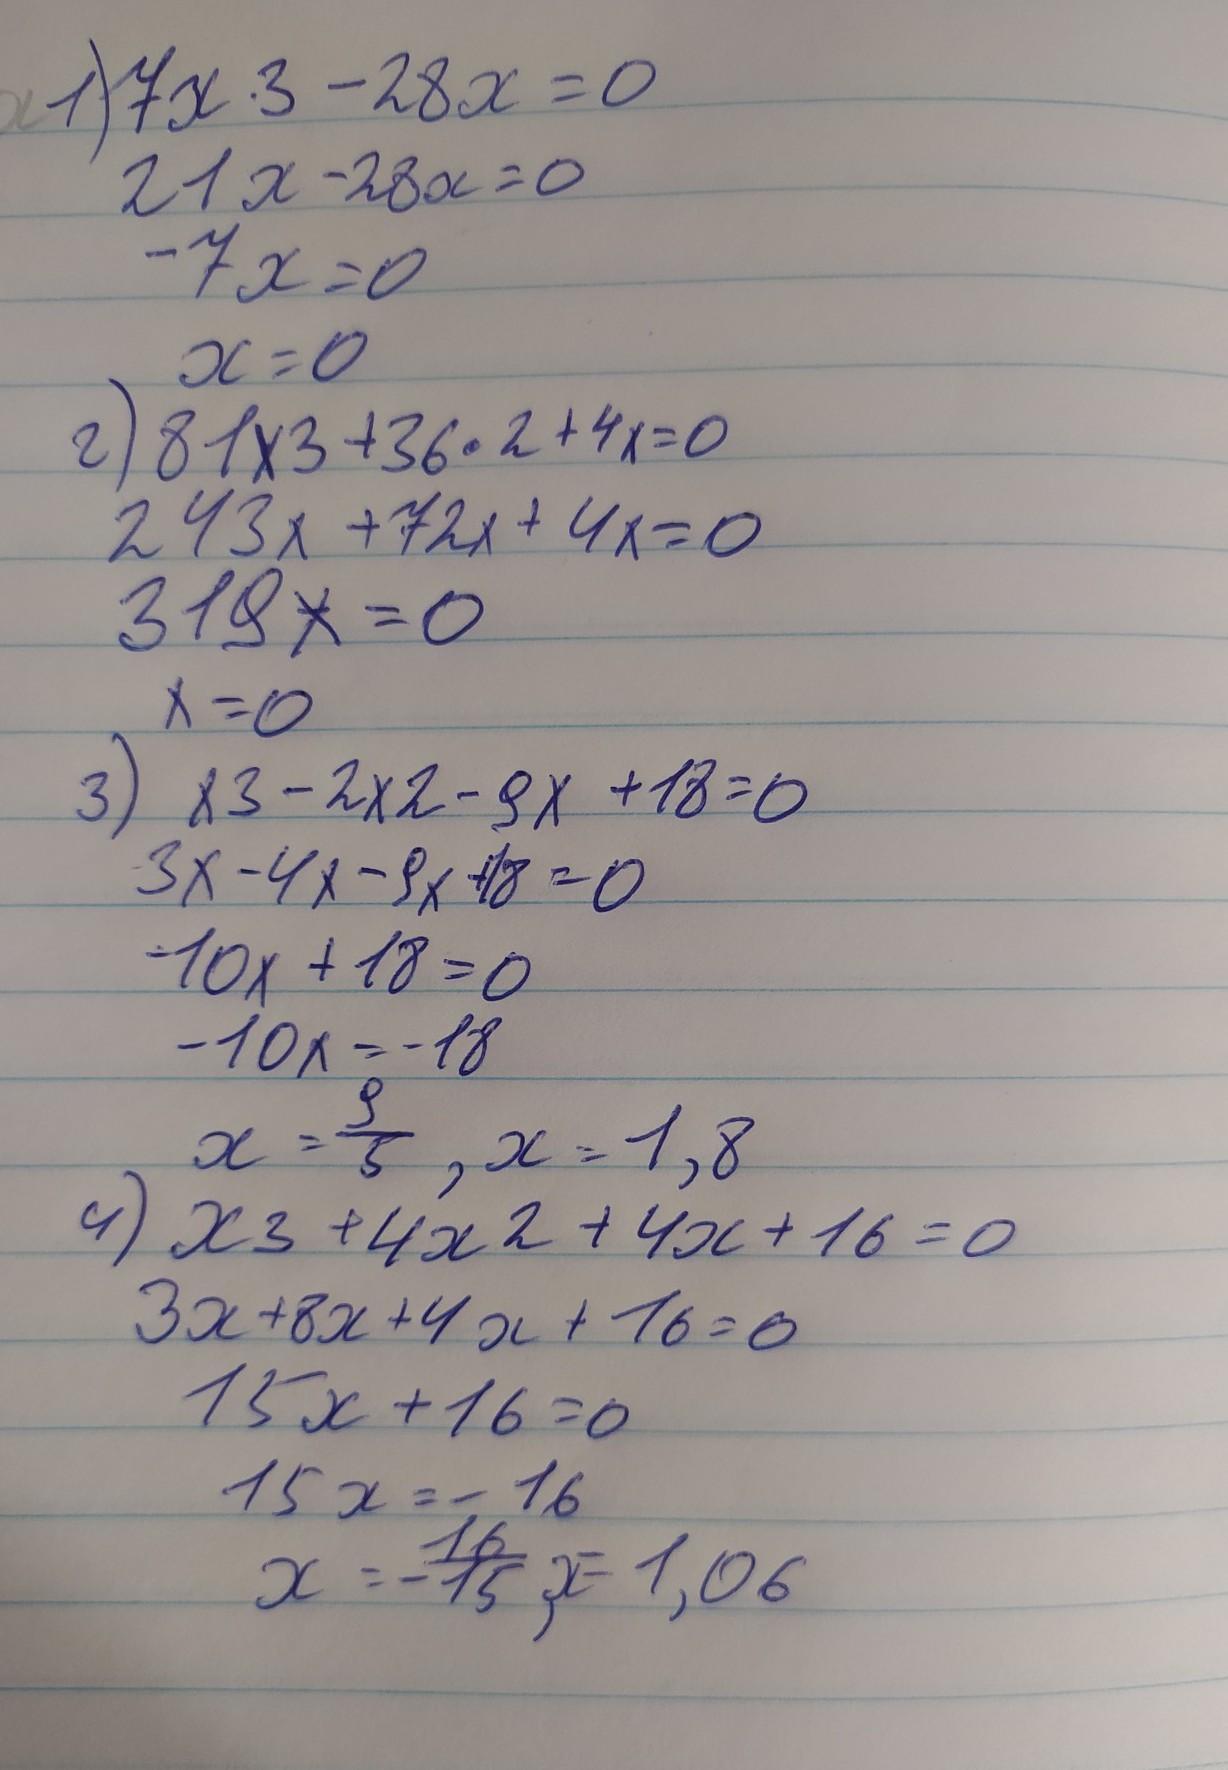 1) 7x·3 - 28x = 0
21x - 28x = 0
-7x = 0
x = 0
2) 81x3 + 36·2 + 4x = 0
243x + 72x + 4x = 0
319x = 0
x = 0
3) x3 - 2x2 - 9x + 18 = 0
3x - 4x - 9x + 18 = 0
-10x + 18 = 0
-10x = -18
x = 9/5, x = 1,8
4) x3 + 4x2 + 4x + 16 = 0
3x + 8x + 4x + 16 = 0
15x + 16 = 0
15x = - 16
x = -16/15, x = 1,06